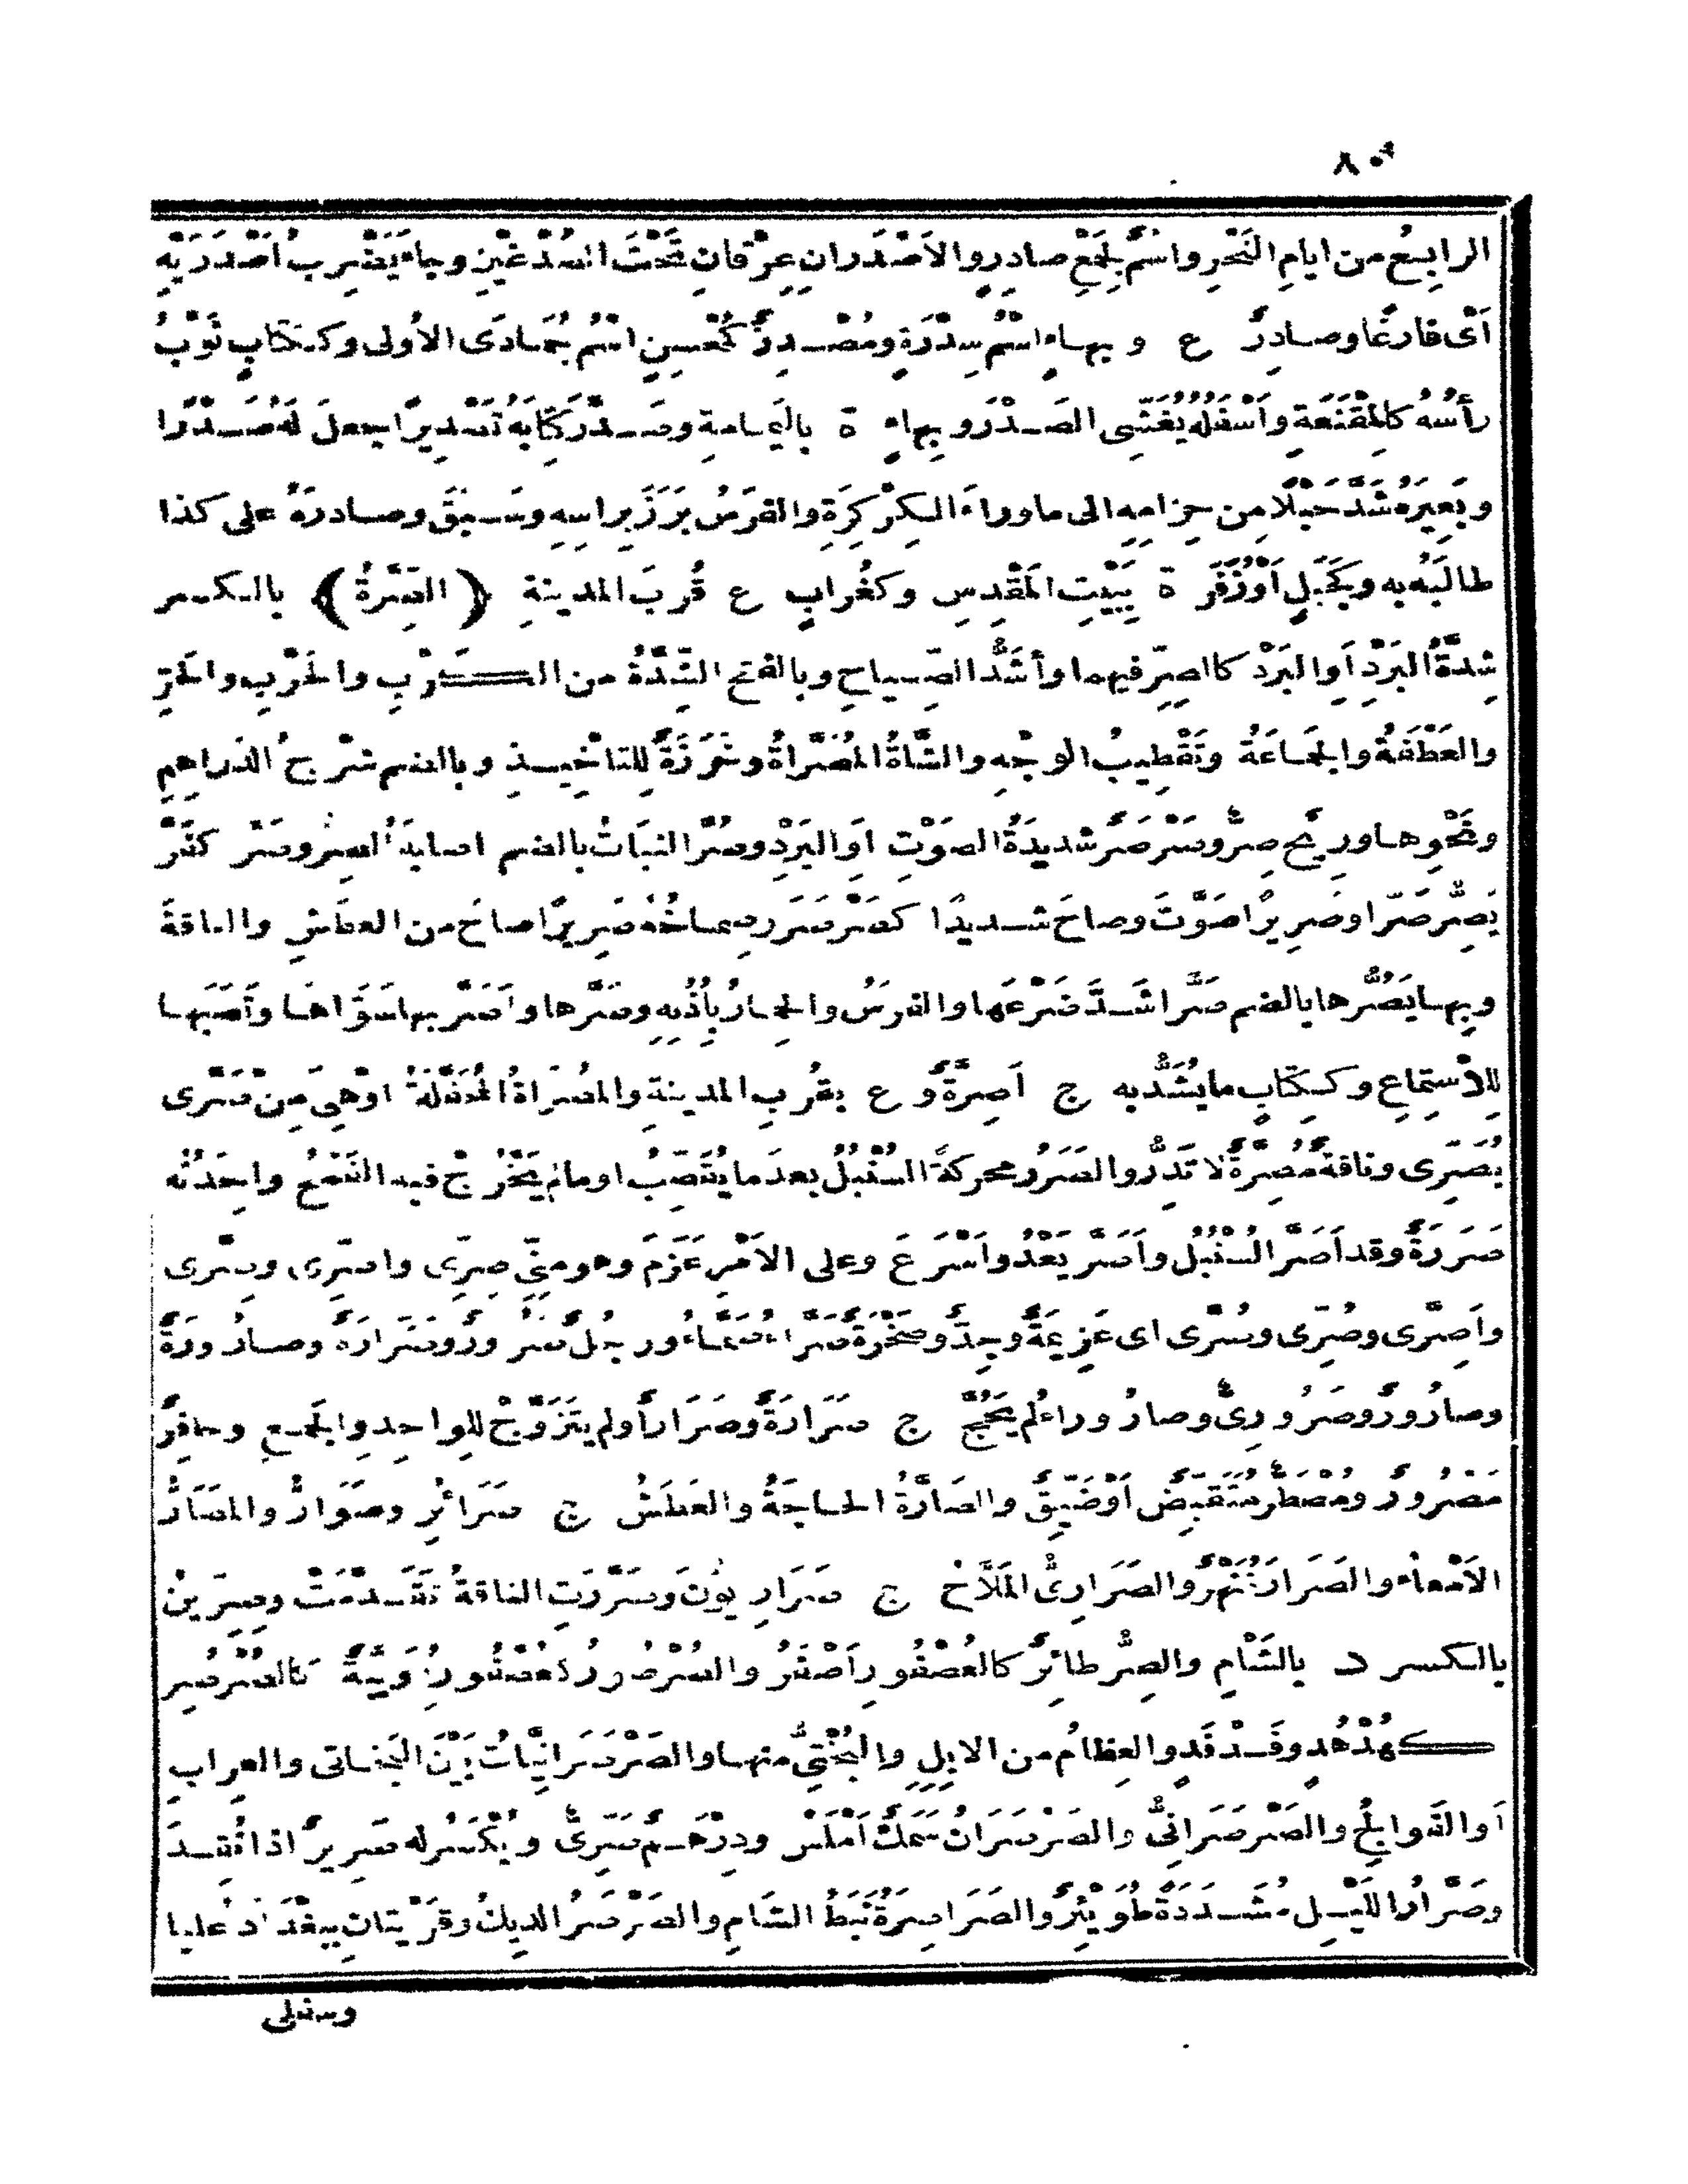 ٨٠
الرابِعُ من ايامِ النَّحْرِ واسْمٌ لِجَمْعِ صادِرٍ والاَصْدَرانِ عِرْقانِ تَحْتَ الصُدْغَيْنِ وجاءَ يَضْرِبُ اَصْدَرَيْهِ
اَىْ فارِغًا وصادِرٌ ع وبهاءٍ اسْمُ سِدْرَةٍ ومُصْدِرٌ كمُحْسِنٍ اسْمُ جُمَادَى الاُولى وككِتَابٍ ثَوْبٌ
رأسُهُ كالمِقْنَعَةِ وأسْفَلُه يُغَشِّى الصَدْرَ وبِهاءٍ ة باليَمامةِ وصَدَّرَ كِتَابَهُ تَصْدِيرًا جعلَ لَهُ صَدْرًا
وبَعِيرَهُ شَدَّ حَبْلًا من حِزامِهِ الى ما وراءَ الكِرْكِرَةِ والفَرَسُ بَرَزَ بِراسِهِ وسَبَقَ وصادرَهُ على كذا
طالَبَهُ به وكجَبَلٍ اَوْ زُفَرَ ة بِبَيْتِ المَقْدِسِ وكغُرابٍ ع قُربَ المدينةِ ﴿الصِّرَّةُ﴾ بالكسر
شِدَّةُ البَرْدِ اَوِ البَرْدُ كالصِرِّ فيهما وأشَدُّ الصِّياحِ وبالفتحِ الشِّدَّةُ من الكَرْبِ والحَرْبِ والحَرِّ
والعَطْفَةُ والجَماعَةُ وتَقْطِيبُ الوجْهِ والشَّاةُ المُصَرَّاةُ وخَرَزَةٌ للتأخيذِ وبالضم شَرْجُ الدَّراهِمِ
ونَحْوِها وريحٌ صِرٌّ وصَرْصَرٌ شديدَةُ الصَوْتِ اَوِ البَرْدِ وصُرَّ النَبَاتُ بالضم اصابَهُ الصِرُّ وصَرَّ كفَرَّ
يَصِرُّ صَرًّا وصَرِيرًا صَوَّتَ وصاحَ شديدًا كصَرْصَرَ وصِماخُهُ صَرِيرًا صاحَ من العطَشِ والناقةَ
وبِها يَصُرُّها بالضم صَرًّا شَدَّ ضَرْعَها والفرسُ والحِمارُ بِأُذُنِهِ وصَرَّها واَصَرَّ بها سَوَّاها ونَصَبَها
للِاسْتِماعِ وككِتَابٍ ما يُشَدُّ به ج اَصِرَّةٌ و ع بقُربِ المدينةِ والمُصَرَّاةُ المُحَفَّلَةُ اَوْ هِىَ مِنْ صَرَّى
يُصَرِّى وناقةٌ مُصِرَّةٌ لا تَدِرُّ والصَرَرُ محركةً السُنْبُلُ بعدَ ما يُقَصِّبُ او ما لم يَخْرُجْ فيه القَمْحُ واحِدَتُه
صَرَرَةٌ وقد اَصَرَّ السُنْبُلُ واَصَرَّ يَعْدُو اَسْرَعَ وعلى الاَمْرِ عَزَمَ وهو مِنِّى صِرِّى واصِرِّى وصِرَّى
واَصِرَّى وصُرِّى وصُرَّى اى عَزِيمَةٌ وجِدٌّ وصَخْرَةٌ صَرَّاءُ صَمَّاءُ ورجُلٌ صَرُورٌ وصَرَارَةٌ وصارُورَةٌ
وصارُورٌ وصَرُورِىٌّ وصارُوراءُ لم يَحُجَّ ج صَرَارَةٌ وصَرَارٌ أو لم يتزَوَّجْ للواحِدِ والجَمعِ وحافِرٌ
مَصْرُورٌ ومُصْطَرٌّ مُتَقَبِّضٌ اَوْ ضَيِّقٌ والصَارَّةُ الحاجَةُ والعَطَشُ ج صَرَائرُ وصَوَارُّ والمَصَارُّ
الاَمْعاءُ والصَرَارُ نَهْرٌ والصَرَارِىُّ المَلَّاحُ ج صَرَارِيُونَ وصَرَّرَتِ الناقةُ تَقَدَّمَتْ وصِرِّينُ
بالكسر د بالشَامِ والصِرُّ طائِرٌ كالعُصْفُورِ اَصْفَرُ والصُرْصُورُ كعُصْفُورٍ دُوَيْبَّةٌ كالصُرْصُرِ
كهُدْهُدٍ وفَدْفَدٍ والعِظامُ من الابِلِ والبُخْتِىُّ منها والصَرْصَرَانِيَّاتُ بَيْنَ البَخاتى والعِرابِ
اَوِ الفَوالِجُ والصَرْصَرَانِىُّ والصَرْصَرَانُ سَمَكٌ اَمْلَسُ ودِرْهَمٌ صَرِّىٌّ ويُكْسَرُ له صَرِيرٌ اذا نُقِدَ
وصَرَّارُ اللَيْلِ مُشَدَّدَةً طُوَيْئِرٌ والصَرَاصِرَةُ نَبَطُ الشَامِ والصَرْصَرُ الديكُ وقَرْيَتانِ بِبَغْدَادَ عُليا
وسفلى